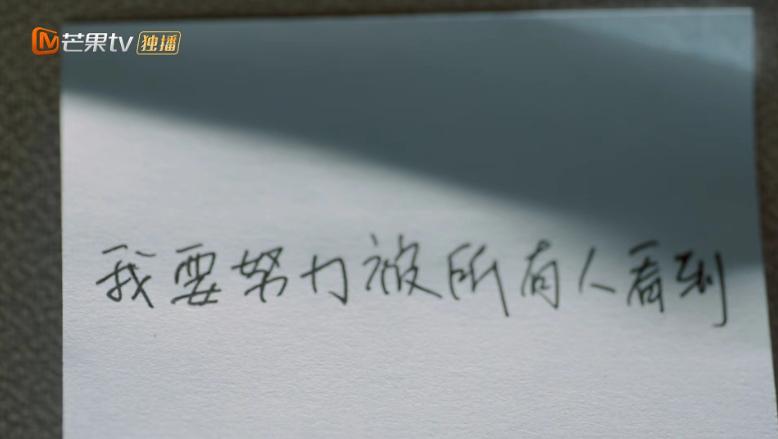 芒果tv 独播
我要努力被所有人看到